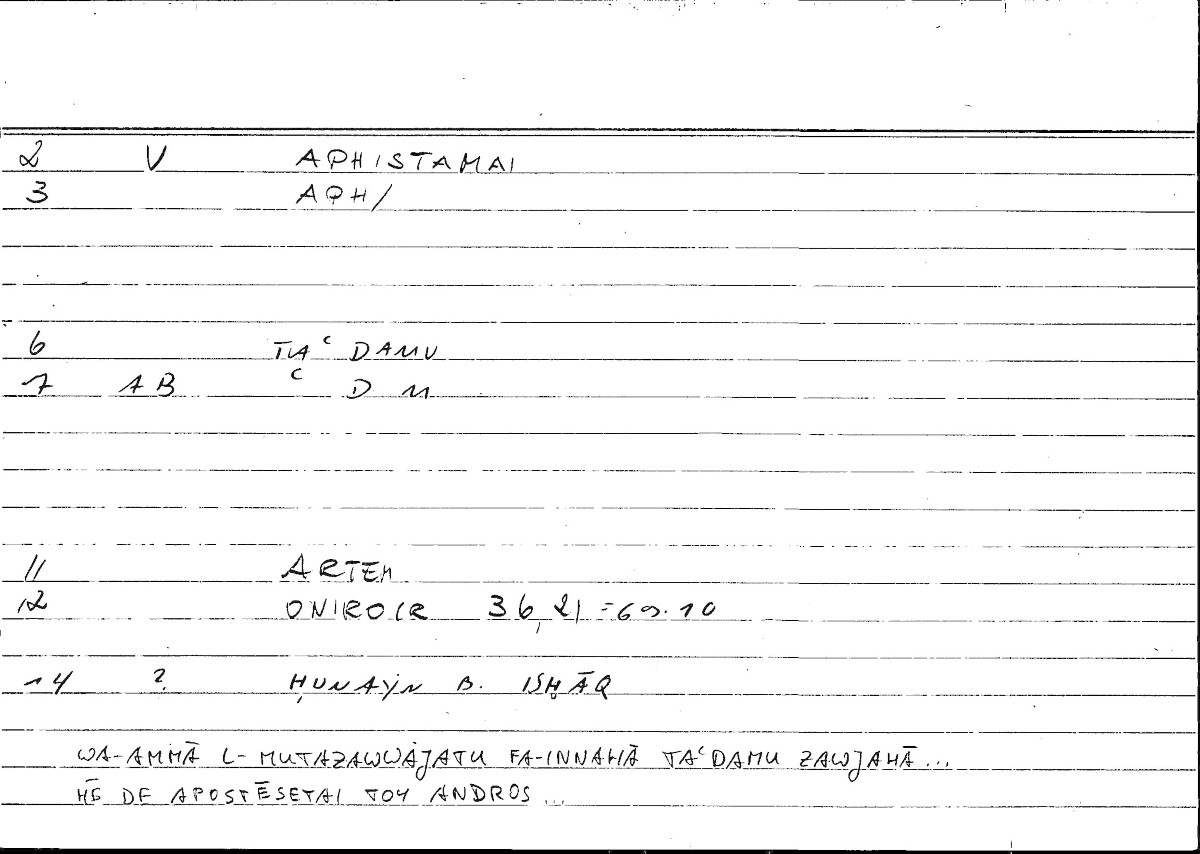 2 V APHISTAMAI
3 APH/
6 TAʿDAMU
7 AB ʿ D M
11 ARTEM
12 ONIROCR 36,21=69.10
14 ? ḤUNAYN B. ISḤĀQ
WA-AMMĀ L-MUTAZAWWAJATU FA-INNAHĀ TAʿDAMU ZAWJAHĀ...
HĒ DE APOSTĒSETAI TOY ANDROS...